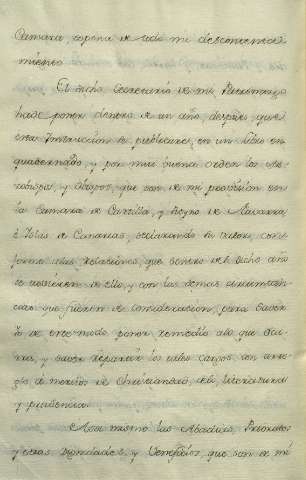 Camara, sopena de todo mi descontenta
miento.
El dicho Secretario de mi Patronazgo
hade poner dentro de un año, despues que
esta Instruccion se publicare, en un libro en
quadernado, y por mui buena orden los Ar
zobispos, y Obispos, que son de mi provision en
la Camara de Castilla, y Reyno de Navarra,
è Islas de Canarias, declarando su valor, con
forme à las Relaciones, que dentro del dicho año
se tubieren de ello, y con las demas circunstan
cias que fueren de consideracion, para
de este modo poner remedio alo que
y saver los tales Cargos, con arre
glo à meritos de Christiandad, de literatura
y prudencia.
Assi mismo las Abadias, Prioratos
y otras Dignidades, y Beneficios, que son de mi